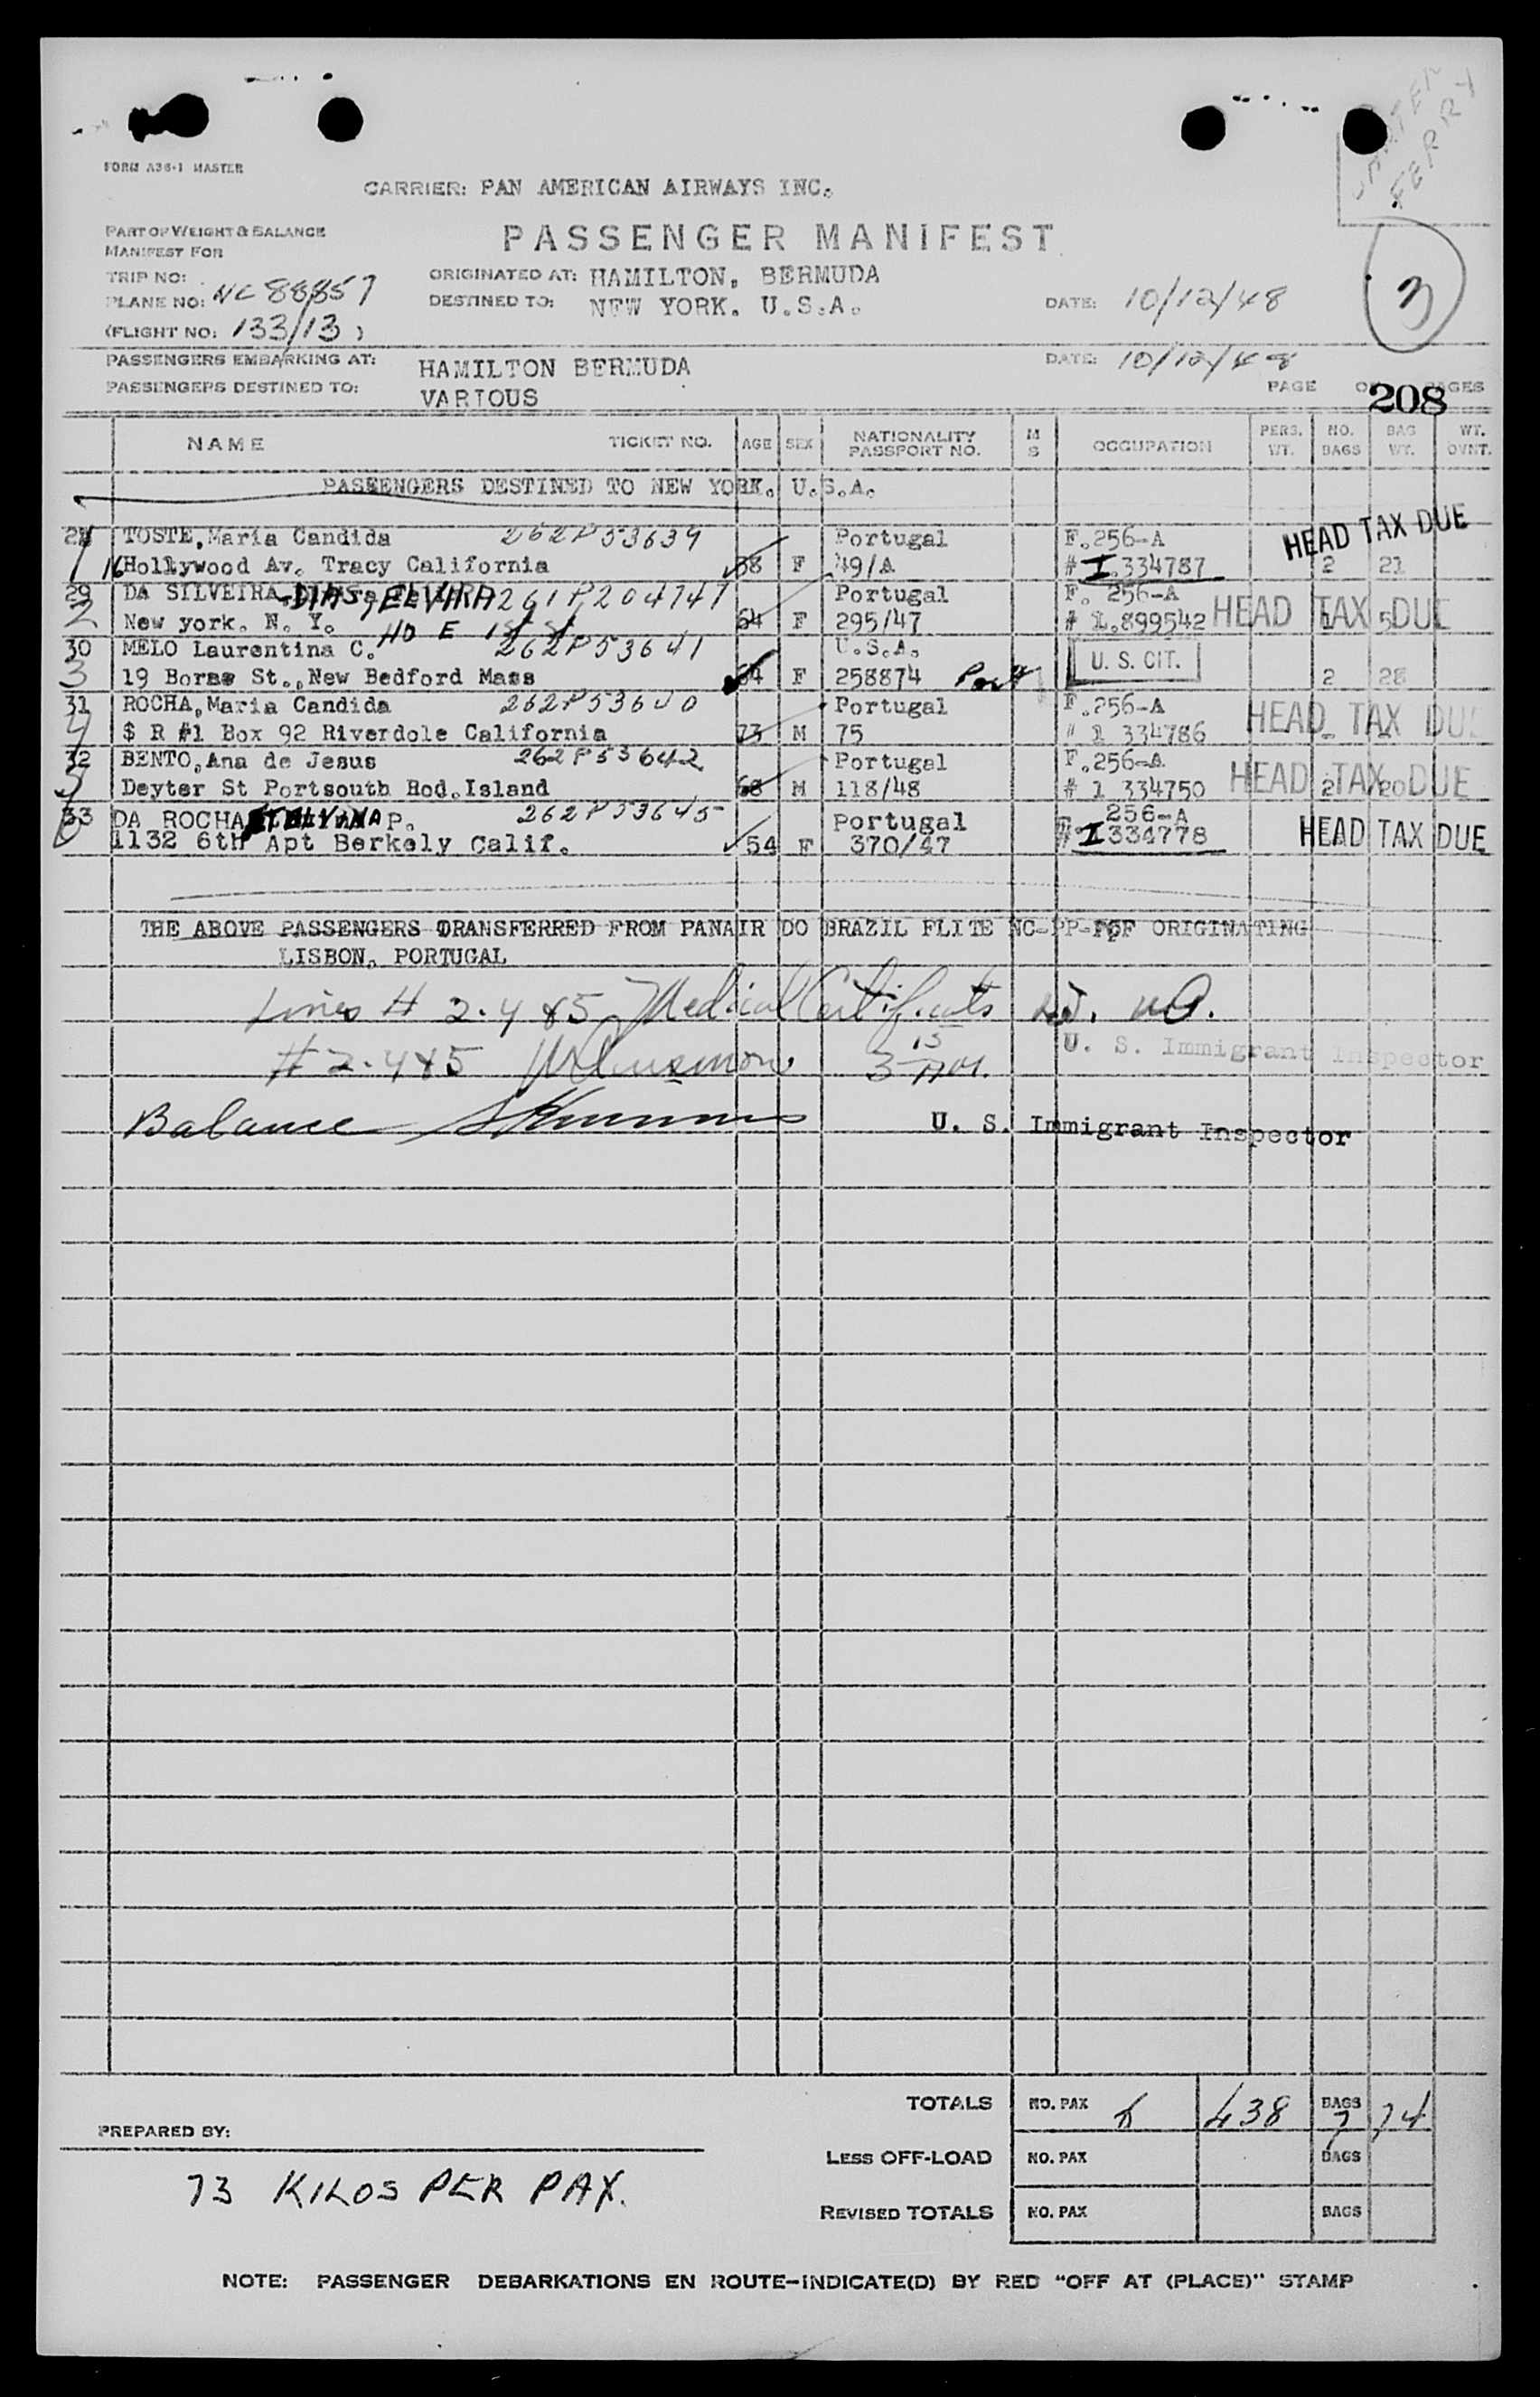 FERRY
FORM A36-1 MASTER
CARRIER: PAN AMERICAN AIRWAYS INC.
PART OF WEIGHT & BALANCE
MANIFEST FOR
PASSENGER MANIFEST
TRIP NO:
ORIGINATED AT: HAMILTON, BERMUDA
PLANE NO: NC 88857
DESTINED TO: NEW YORK. U.S.A.
DATE: 10/12/48
3
(FLIGHT NO: 133/13)
PASSENGERS EMBARKING AT: HAMILTON BERMUDA
DATE: 10/12/48
PASSENGERS DESTINED TO: VARIOUS
PAGE OF PAGES
208
NAME TICKET NO. AGE SEX NATIONALITY PASSPORT NO. M S OCCUPATION PERS. WT. NO. BAGS BAG WT. WT. OVNT.
PASSENGERS DESTINED TO NEW YORK. U.S.A.
28 TOSTE,Maria Candida 262P53639 Portugal F.256-A HEAD TAX DUE
1 16 Hollywood Av. Tracy California 38 F 49/A # I.334787 2 21
29 DA SILVEIRA, DIAS, ELVIRA 261P204747 Portugal F. 256-A
2 New york. N. Y. 40 E 1st St 64 F 295/47 # 1.899542 HEAD TAX DUE
30 MELO Laurentina C. 262P53641 U.S.A.
3 19 Borne St.,New Bedford Mass 64 F 258874 Port U. S. CIT. 2 28
31 ROCHA,Maria Candida 262P53640 Portugal F.256-A
4 $ R #1 Box 92 Riverdole California 73 M 75 # 1 334786 HEAD TAX DUE
32 BENTO,Ana de Jesus 262P53642 Portugal F.256-A
5 Deyter St Portsouth Rod.Island 68 M 118/48 # 1 334750 2 20 HEAD TAX DUE
33 DA ROCHA ETELVINA P. 262P53645 Portugal F. 256-A
6 1132 6th Apt Berkely Calif. 54 F 370/47 # I 334778 HEAD TAX DUE
THE ABOVE PASSENGERS TRANSFERRED FROM PANAIR DO BRAZIL FLITE NC-PP-PCF ORIGINATING
LISBON, PORTUGAL
Lines # 2.4 & 5 Medical Certificates
# 2.4 & 5
U. S. Immigrant Inspector
Balance
U. S. Immigrant Inspector
TOTALS NO. PAX 6 438 BAGS 7 74
PREPARED BY:
LESS OFF-LOAD NO. PAX BAGS
73 KILOS PER PAX.
REVISED TOTALS NO. PAX BAGS
NOTE: PASSENGER DEBARKATIONS EN ROUTE-INDICATE(D) BY RED "OFF AT (PLACE)" STAMP